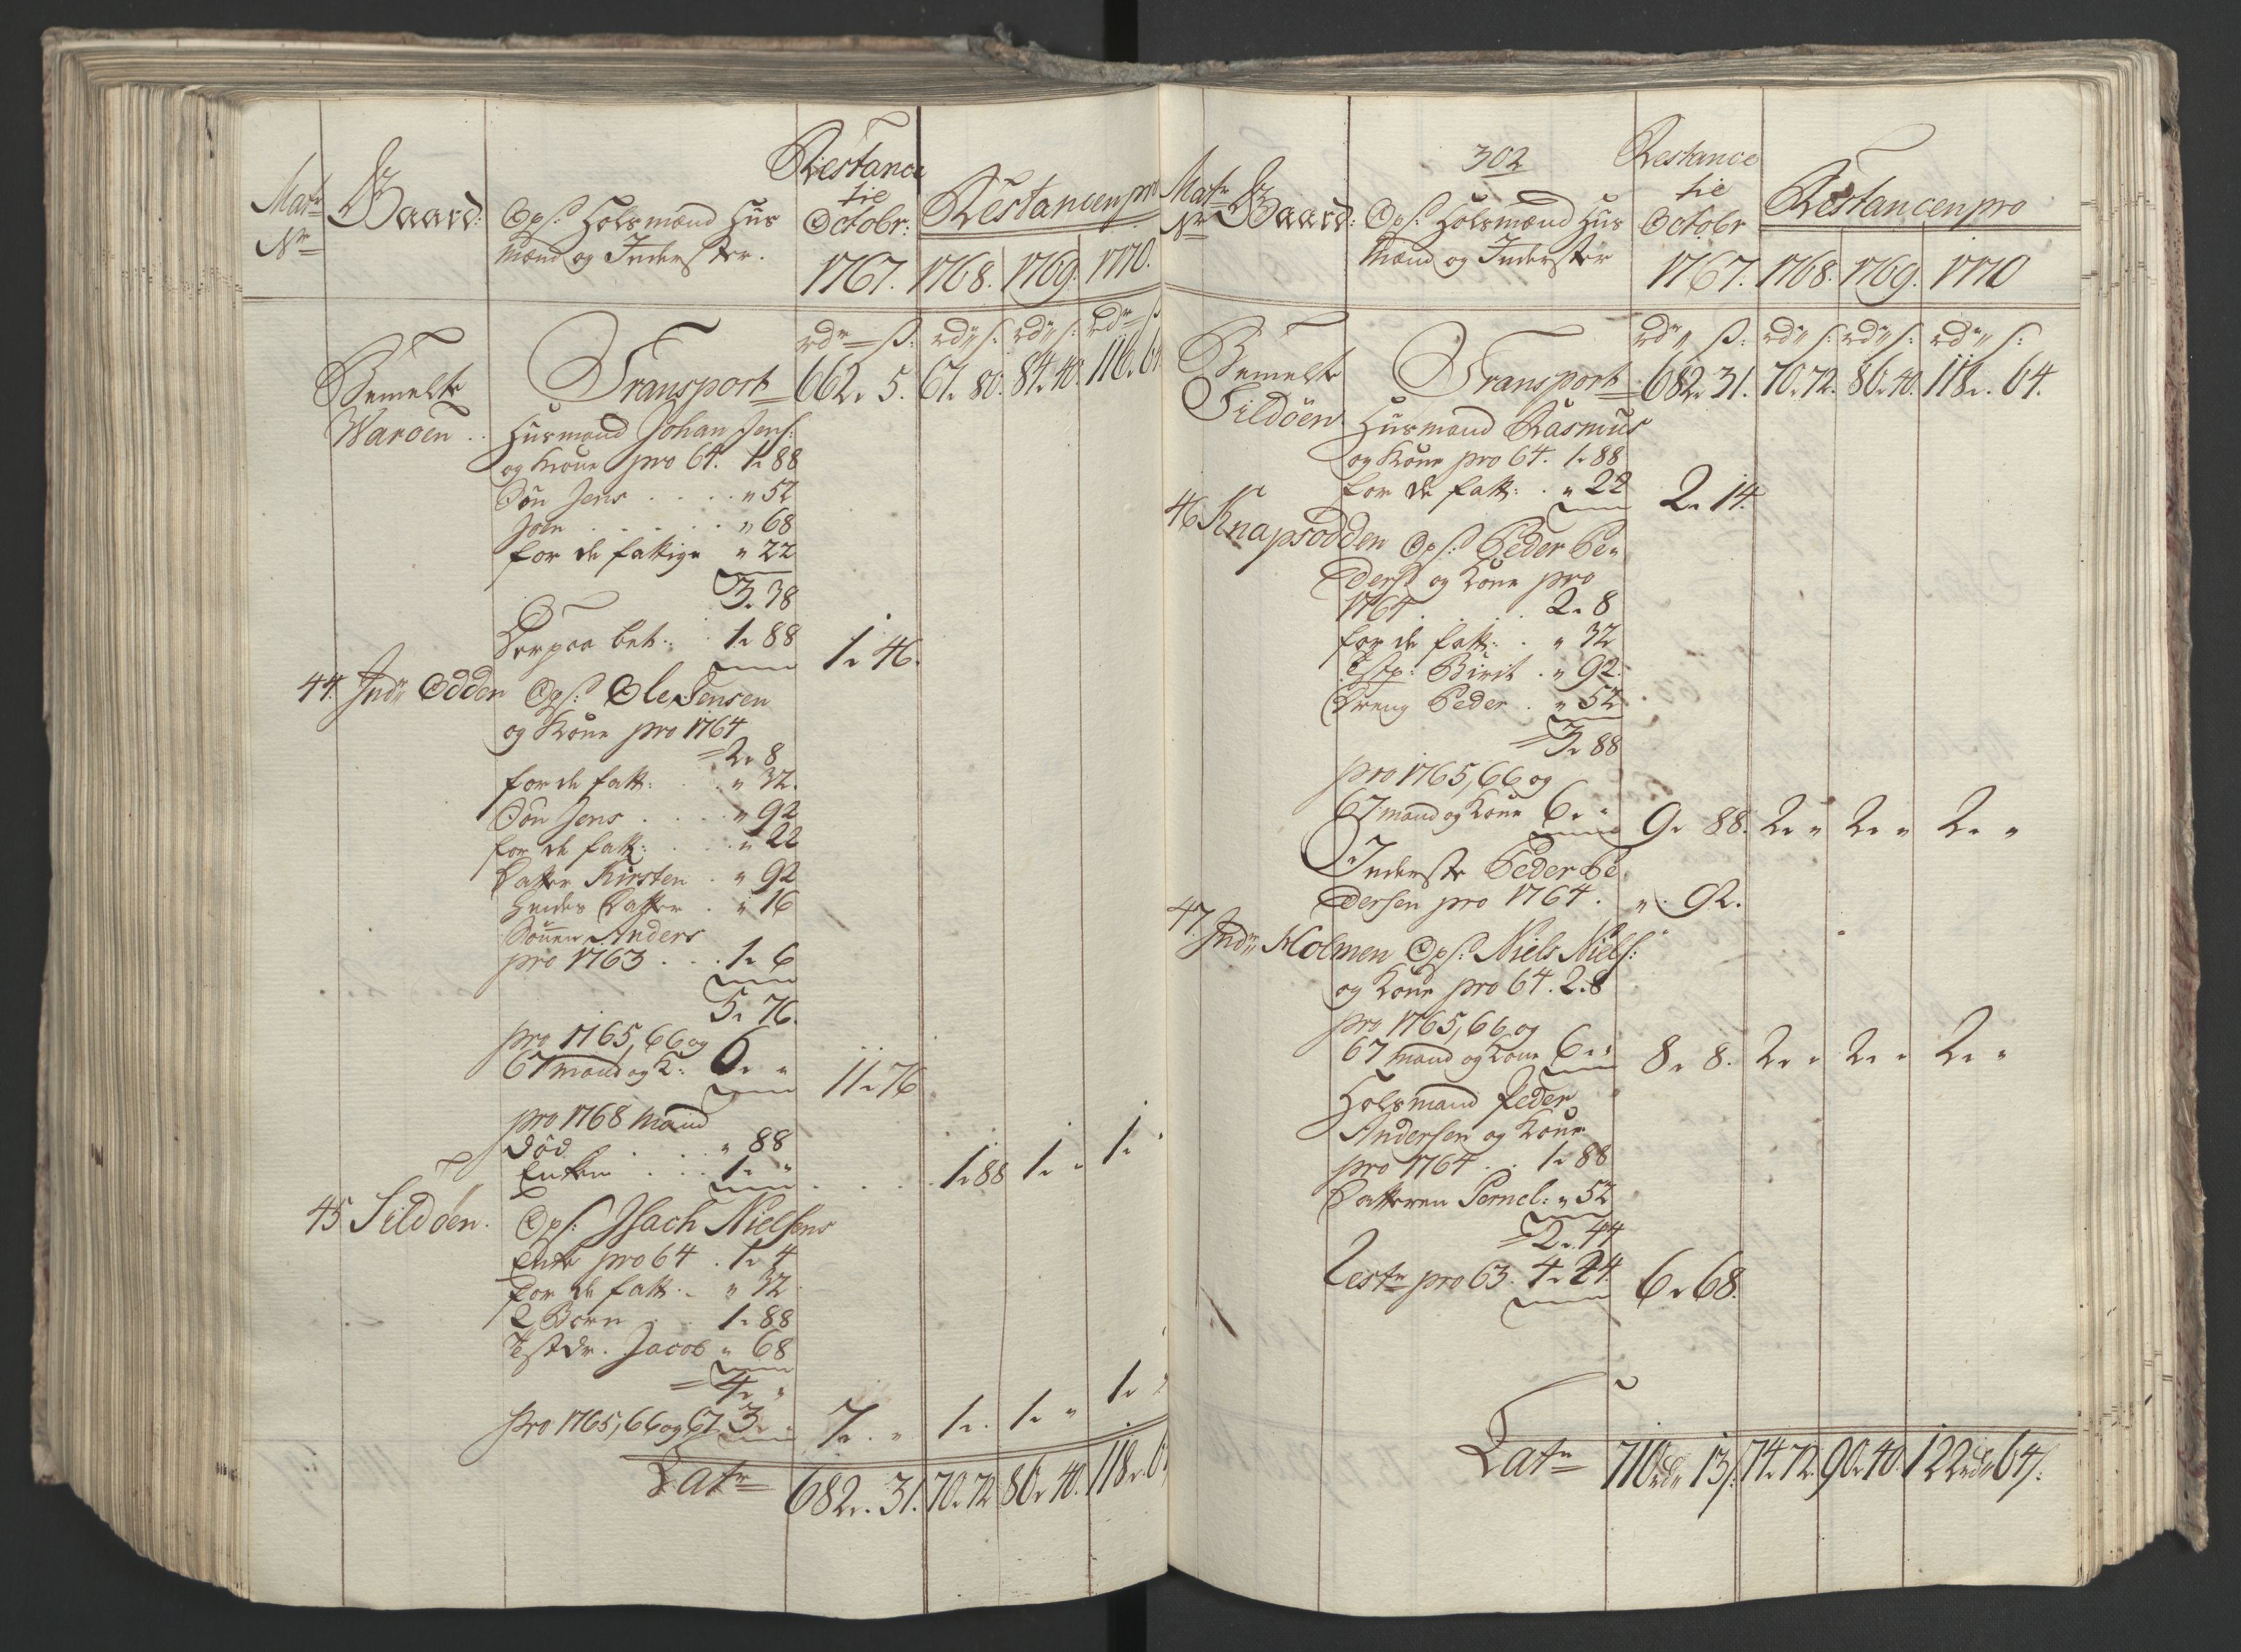 Matr
Nr
Gaard:
Ops: Holsmænd Huus
mænd og Inderster.
Restance
til
Octobr:
1767.
Restancen pro
1768. 1769. 1770.
rdr ß: rdr s: rdr s: rdr s
Bemelte
Warøen
Transport 662 " 5. 67 " 80. 84 " 40. 116 " 6
Huusmand Johan Jens:
og Kone pro 64. 1 " 88
Søn Jens . . . . " 52
Joen . . . . . " 68
for de fattige " 22
3 " 38
Derpaa bet: . 1 " 88 1 " 46.
44. Indr Odden Ops: Ole Jensen
og Kone pro 1764
2 " 8
for de fatt: . . " 32.
Søn Jens . . . . " 92
for de fatt: . . . " 22
Datter Kirsten . " 92
hendes Datter . " 16
Sønnen Anders
pro 1763 . . . 1 " 6
5 " 76.
pro 1765, 66 og
67 mand og K: 6 " " 11 " 76
pro 1768 Mand
død . . . " 88
Enken . . . 1 " " . . . 1 " 88 1 " " 1 "
45 Sildøen. Ops: Isach Nielsens
Enke pro 64 . 1 " 4
for de fatt: " 32
2 Børn . . 1 " 88
Testdr. Jacob " 68
4 " "
pro 1765, 66 og 67. 3 " . 7 " " 1 " 1 " " 1 "
Latr 682 " 31. 70 " 72 86 " 40. 118 " 6
302
Matr
Nr
Gaard:
Ops: Holsmænd Huus
Mænd og Inderster
Restance
til
Octobr
1767.
Restancen pro
1768. 1769. 1770
rdr " ß: rdr " s: rdr " s: rdr " s:
Bemelte
Sildøen
Transport 682 " 31. 70 " 72. 86 " 40. 118 " 64.
Huusmand Rasmus
og Kone pro 64. 1 " 88
for de fatt: . " 22 2 " 14.
46 Knapsodden Ops: Peder Pe"
ders: og Kone pro
1764 . . . . 2 " 8
for de fatt: . " 32
Tstp: Birit . " 92.
Dreng Peder . " 52
3 " 88
pro 1765, 66 og
67 mand og Kone 6 " " 9 " 88. 2 " " 2 " " 2 " "
Inderste Peder Pe
dersen pro 1764. " 92.
47. Indr Holmen Ops: Niels Niels:
og Kone pro 64. 2 " 8
pro 1765, 66 og
67 mand og Kone 6 " " 8 " 8. 2 " " 2 " " 2 " "
Holsmand Peder
Andersen og Kone
pro 1764 . . 1 " 88
Datteren Pernel: " 52
2 " 44
Restr pro 63. 4 " 24 6 " 68.
Latr 710 rdr 13 s 74 " 72. 90 " 40. 122 rdr 64 s: